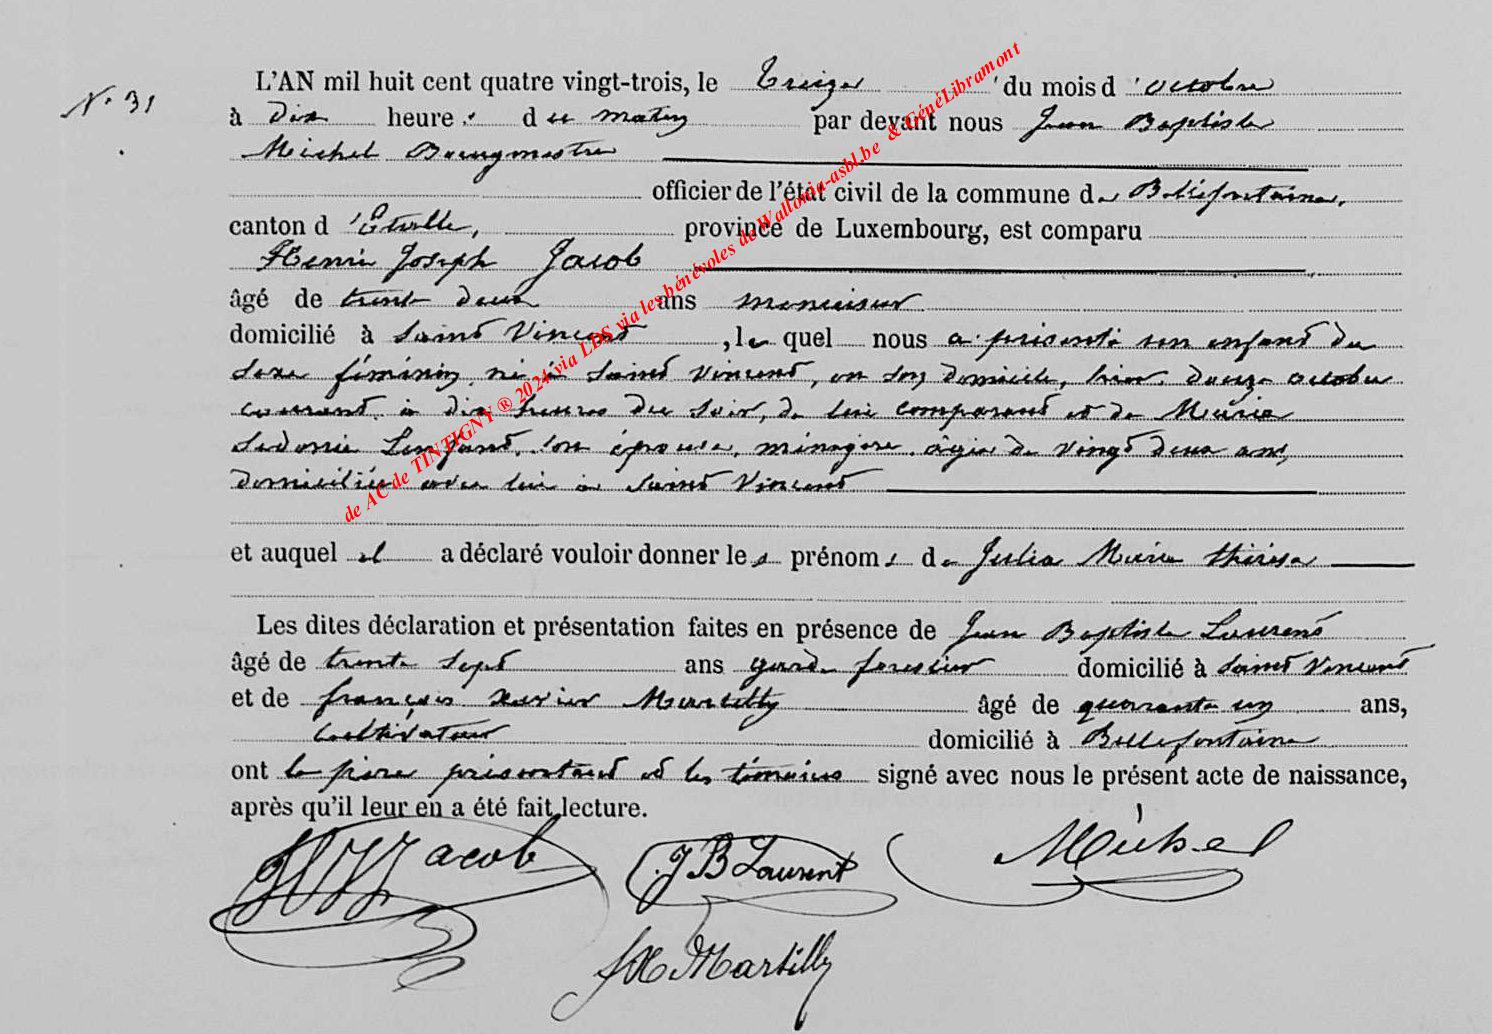 N° 31
L'AN mil huit cent quatre vingt-trois, le treize du mois d'octobre
à dix heures du matin par devant nous Jean Baptiste
Michel Bourgmestre
officier de l'état civil de la commune de Bellefontaine,
canton d'Etalle, province de Luxembourg, est comparu
Henri Joseph Jacob
âgé de trente deux ans menuisier
domicilié à Saint Vincent, lequel nous a présenté un enfant du
sexe féminin, né à Saint Vincent, en son domicile, hier, douze octobre
courant, à dix heures du soir, de lui comparant et de Marie
Sidonie Lenfant, son épouse, ménagère, âgée de vingt deux ans,
domiciliée avec lui à Saint Vincent
et auquel il a déclaré vouloir donner les prénoms de Julia Marie thérèse
Les dites déclaration et présentation faites en présence de Jean Baptiste Laurent
âgé de trente sept ans garde forestier domicilié à Saint Vincent
et de françois xavier Martilly âgé de quarante un ans,
cultivateur domicilié à Bellefontaine
ont le père présentant et les témoins signé avec nous le présent acte de naissance,
après qu'il leur en a été fait lecture.
HJ Jacob JB Laurent Michel
fX Martilly
de AC de TINTIGNY ® 2024 via LDS via les bénévoles de Wallonia-asbl.be & GénéLibramont